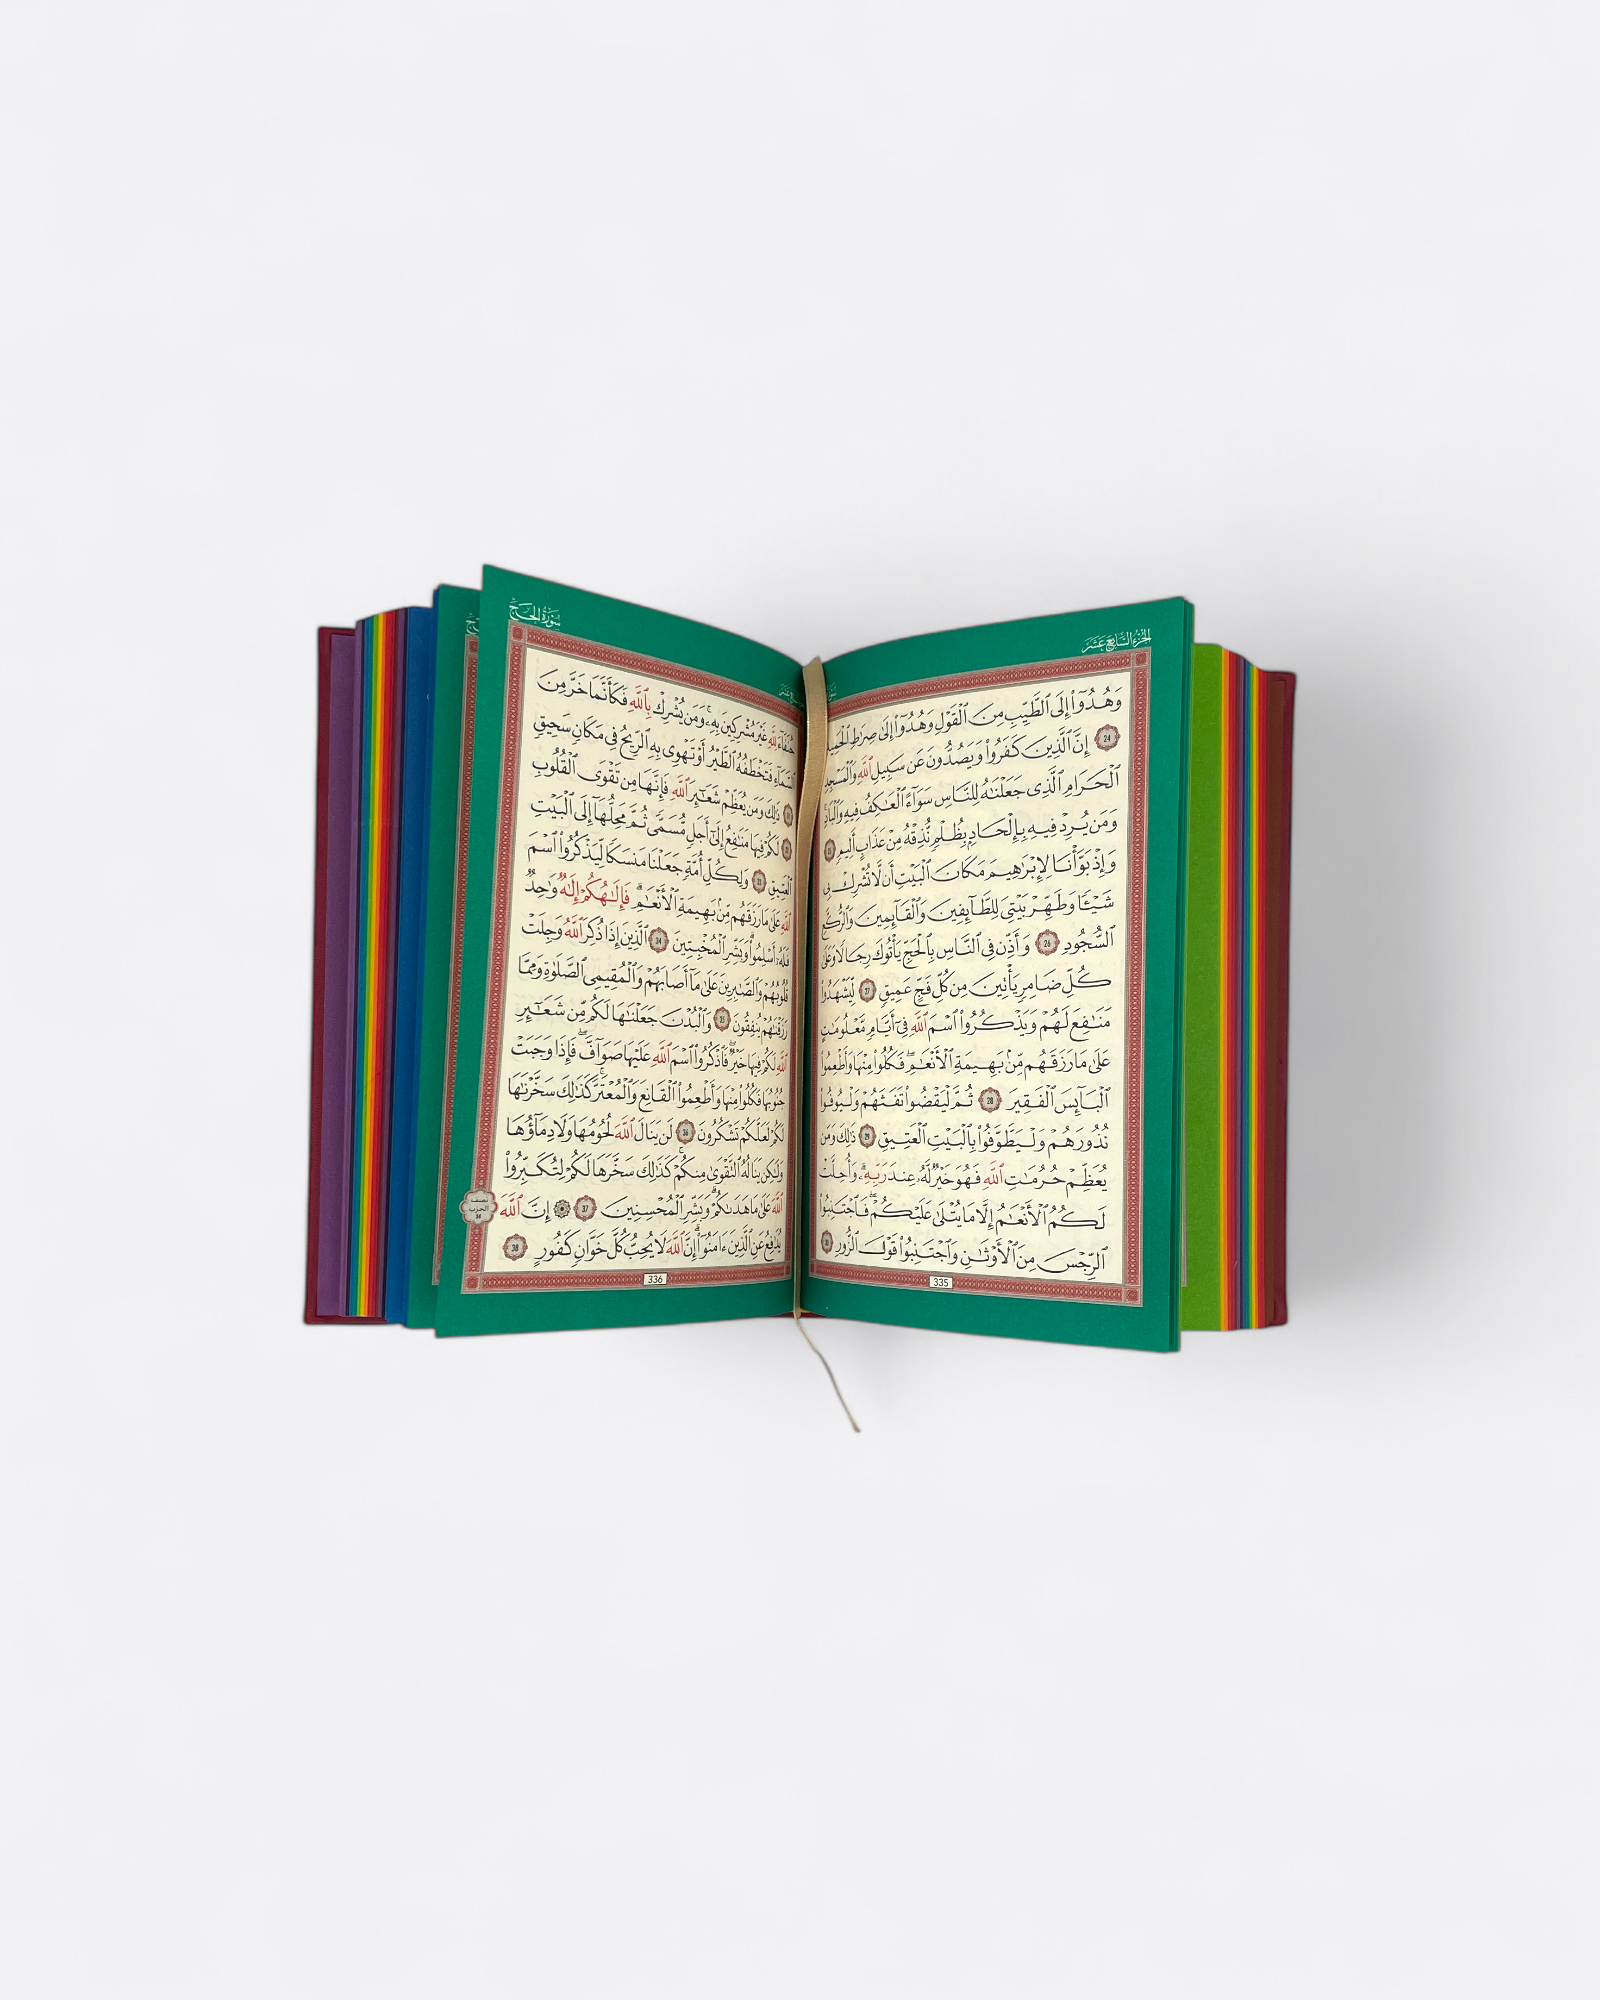 الجزء السابع عشر
وَهُدُوٓا۟ إِلَى ٱلطَّيِّبِ مِنَ ٱلْقَوْلِ وَهُدُوٓا۟ إِلَىٰ صِرَٰطِ ٱلْحَمِيدِ
24 إِنَّ ٱلَّذِينَ كَفَرُوا۟ وَيَصُدُّونَ عَن سَبِيلِ ٱللَّهِ وَٱلْمَسْجِدِ
ٱلْحَرَامِ ٱلَّذِى جَعَلْنَٰهُ لِلنَّاسِ سَوَآءً ٱلْعَٰكِفُ فِيهِ وَٱلْبَادِ
وَمَن يُرِدْ فِيهِ بِإِلْحَادٍۭ بِظُلْمٍ نُّذِقْهُ مِنْ عَذَابٍ أَلِيمٍ
وَإِذْ بَوَّأْنَا لِإِبْرَٰهِيمَ مَكَانَ ٱلْبَيْتِ أَن لَّا تُشْرِكْ بِى
شَيْـًٔا وَطَهِّرْ بَيْتِىَ لِلطَّآئِفِينَ وَٱلْقَآئِمِينَ وَٱلرُّكَّعِ
ٱلسُّجُودِ 26 وَأَذِّن فِى ٱلنَّاسِ بِٱلْحَجِّ يَأْتُوكَ رِجَالًا وَعَلَىٰ
كُلِّ ضَامِرٍ يَأْتِينَ مِن كُلِّ فَجٍّ عَمِيقٍ 27 لِّيَشْهَدُوا۟
مَنَٰفِعَ لَهُمْ وَيَذْكُرُوا۟ ٱسْمَ ٱللَّهِ فِىٓ أَيَّامٍ مَّعْلُومَٰتٍ
عَلَىٰ مَا رَزَقَهُم مِّنۢ بَهِيمَةِ ٱلْأَنْعَٰمِ ۖ فَكُلُوا۟ مِنْهَا وَأَطْعِمُوا۟
ٱلْبَآئِسَ ٱلْفَقِيرَ 28 ثُمَّ لْيَقْضُوا۟ تَفَثَهُمْ وَلْيُوفُوا۟
نُذُورَهُمْ وَلْيَطَّوَّفُوا۟ بِٱلْبَيْتِ ٱلْعَتِيقِ 29 ذَٰلِكَ وَمَن
يُعَظِّمْ حُرُمَٰتِ ٱللَّهِ فَهُوَ خَيْرٌ لَّهُۥ عِندَ رَبِّهِۦ ۗ وَأُحِلَّتْ
لَكُمُ ٱلْأَنْعَٰمُ إِلَّا مَا يُتْلَىٰ عَلَيْكُمْ ۖ فَٱجْتَنِبُوا۟
ٱلرِّجْسَ مِنَ ٱلْأَوْثَٰنِ وَٱجْتَنِبُوا۟ قَوْلَ ٱلزُّورِ 30
335
سورة الحج
حُنَفَآءَ لِلَّهِ غَيْرَ مُشْرِكِينَ بِهِۦ ۚ وَمَن يُشْرِكْ بِٱللَّهِ فَكَأَنَّمَا خَرَّ مِنَ
ٱلسَّمَآءِ فَتَخْطَفُهُ ٱلطَّيْرُ أَوْ تَهْوِى بِهِ ٱلرِّيحُ فِى مَكَانٍ سَحِيقٍ
ذَٰلِكَ وَمَن يُعَظِّمْ شَعَٰٓئِرَ ٱللَّهِ فَإِنَّهَا مِن تَقْوَى ٱلْقُلُوبِ
لَكُمْ فِيهَا مَنَٰفِعُ إِلَىٰٓ أَجَلٍ مُّسَمًّى ثُمَّ مَحِلُّهَآ إِلَى ٱلْبَيْتِ
ٱلْعَتِيقِ 33 وَلِكُلِّ أُمَّةٍ جَعَلْنَا مَنسَكًا لِّيَذْكُرُوا۟ ٱسْمَ
ٱللَّهِ عَلَىٰ مَا رَزَقَهُم مِّنۢ بَهِيمَةِ ٱلْأَنْعَٰمِ ۗ فَإِلَٰهُكُمْ إِلَٰهٌ وَٰحِدٌ
فَلَهُۥٓ أَسْلِمُوا۟ ۗ وَبَشِّرِ ٱلْمُخْبِتِينَ 34 ٱلَّذِينَ إِذَا ذُكِرَ ٱللَّهُ وَجِلَتْ
قُلُوبُهُمْ وَٱلصَّٰبِرِينَ عَلَىٰ مَآ أَصَابَهُمْ وَٱلْمُقِيمِى ٱلصَّلَوٰةِ وَمِمَّا
رَزَقْنَٰهُمْ يُنفِقُونَ 35 وَٱلْبُدْنَ جَعَلْنَٰهَا لَكُم مِّن شَعَٰٓئِرِ
ٱللَّهِ لَكُمْ فِيهَا خَيْرٌ ۖ فَٱذْكُرُوا۟ ٱسْمَ ٱللَّهِ عَلَيْهَا صَوَآفَّ ۖ فَإِذَا وَجَبَتْ
جُنُوبُهَا فَكُلُوا۟ مِنْهَا وَأَطْعِمُوا۟ ٱلْقَانِعَ وَٱلْمُعْتَرَّ ۚ كَذَٰلِكَ سَخَّرْنَٰهَا
لَكُمْ لَعَلَّكُمْ تَشْكُرُونَ 36 لَن يَنَالَ ٱللَّهَ لُحُومُهَا وَلَا دِمَآؤُهَا
وَلَٰكِن يَنَالُهُ ٱلتَّقْوَىٰ مِنكُمْ ۚ كَذَٰلِكَ سَخَّرَهَا لَكُمْ لِتُكَبِّرُوا۟
ٱللَّهَ عَلَىٰ مَا هَدَىٰكُمْ ۗ وَبَشِّرِ ٱلْمُحْسِنِينَ 37 إِنَّ ٱللَّهَ
يُدَٰفِعُ عَنِ ٱلَّذِينَ ءَامَنُوٓا۟ ۗ إِنَّ ٱللَّهَ لَا يُحِبُّ كُلَّ خَوَّانٍ كَفُورٍ 38
نصف
الحزب
34
336